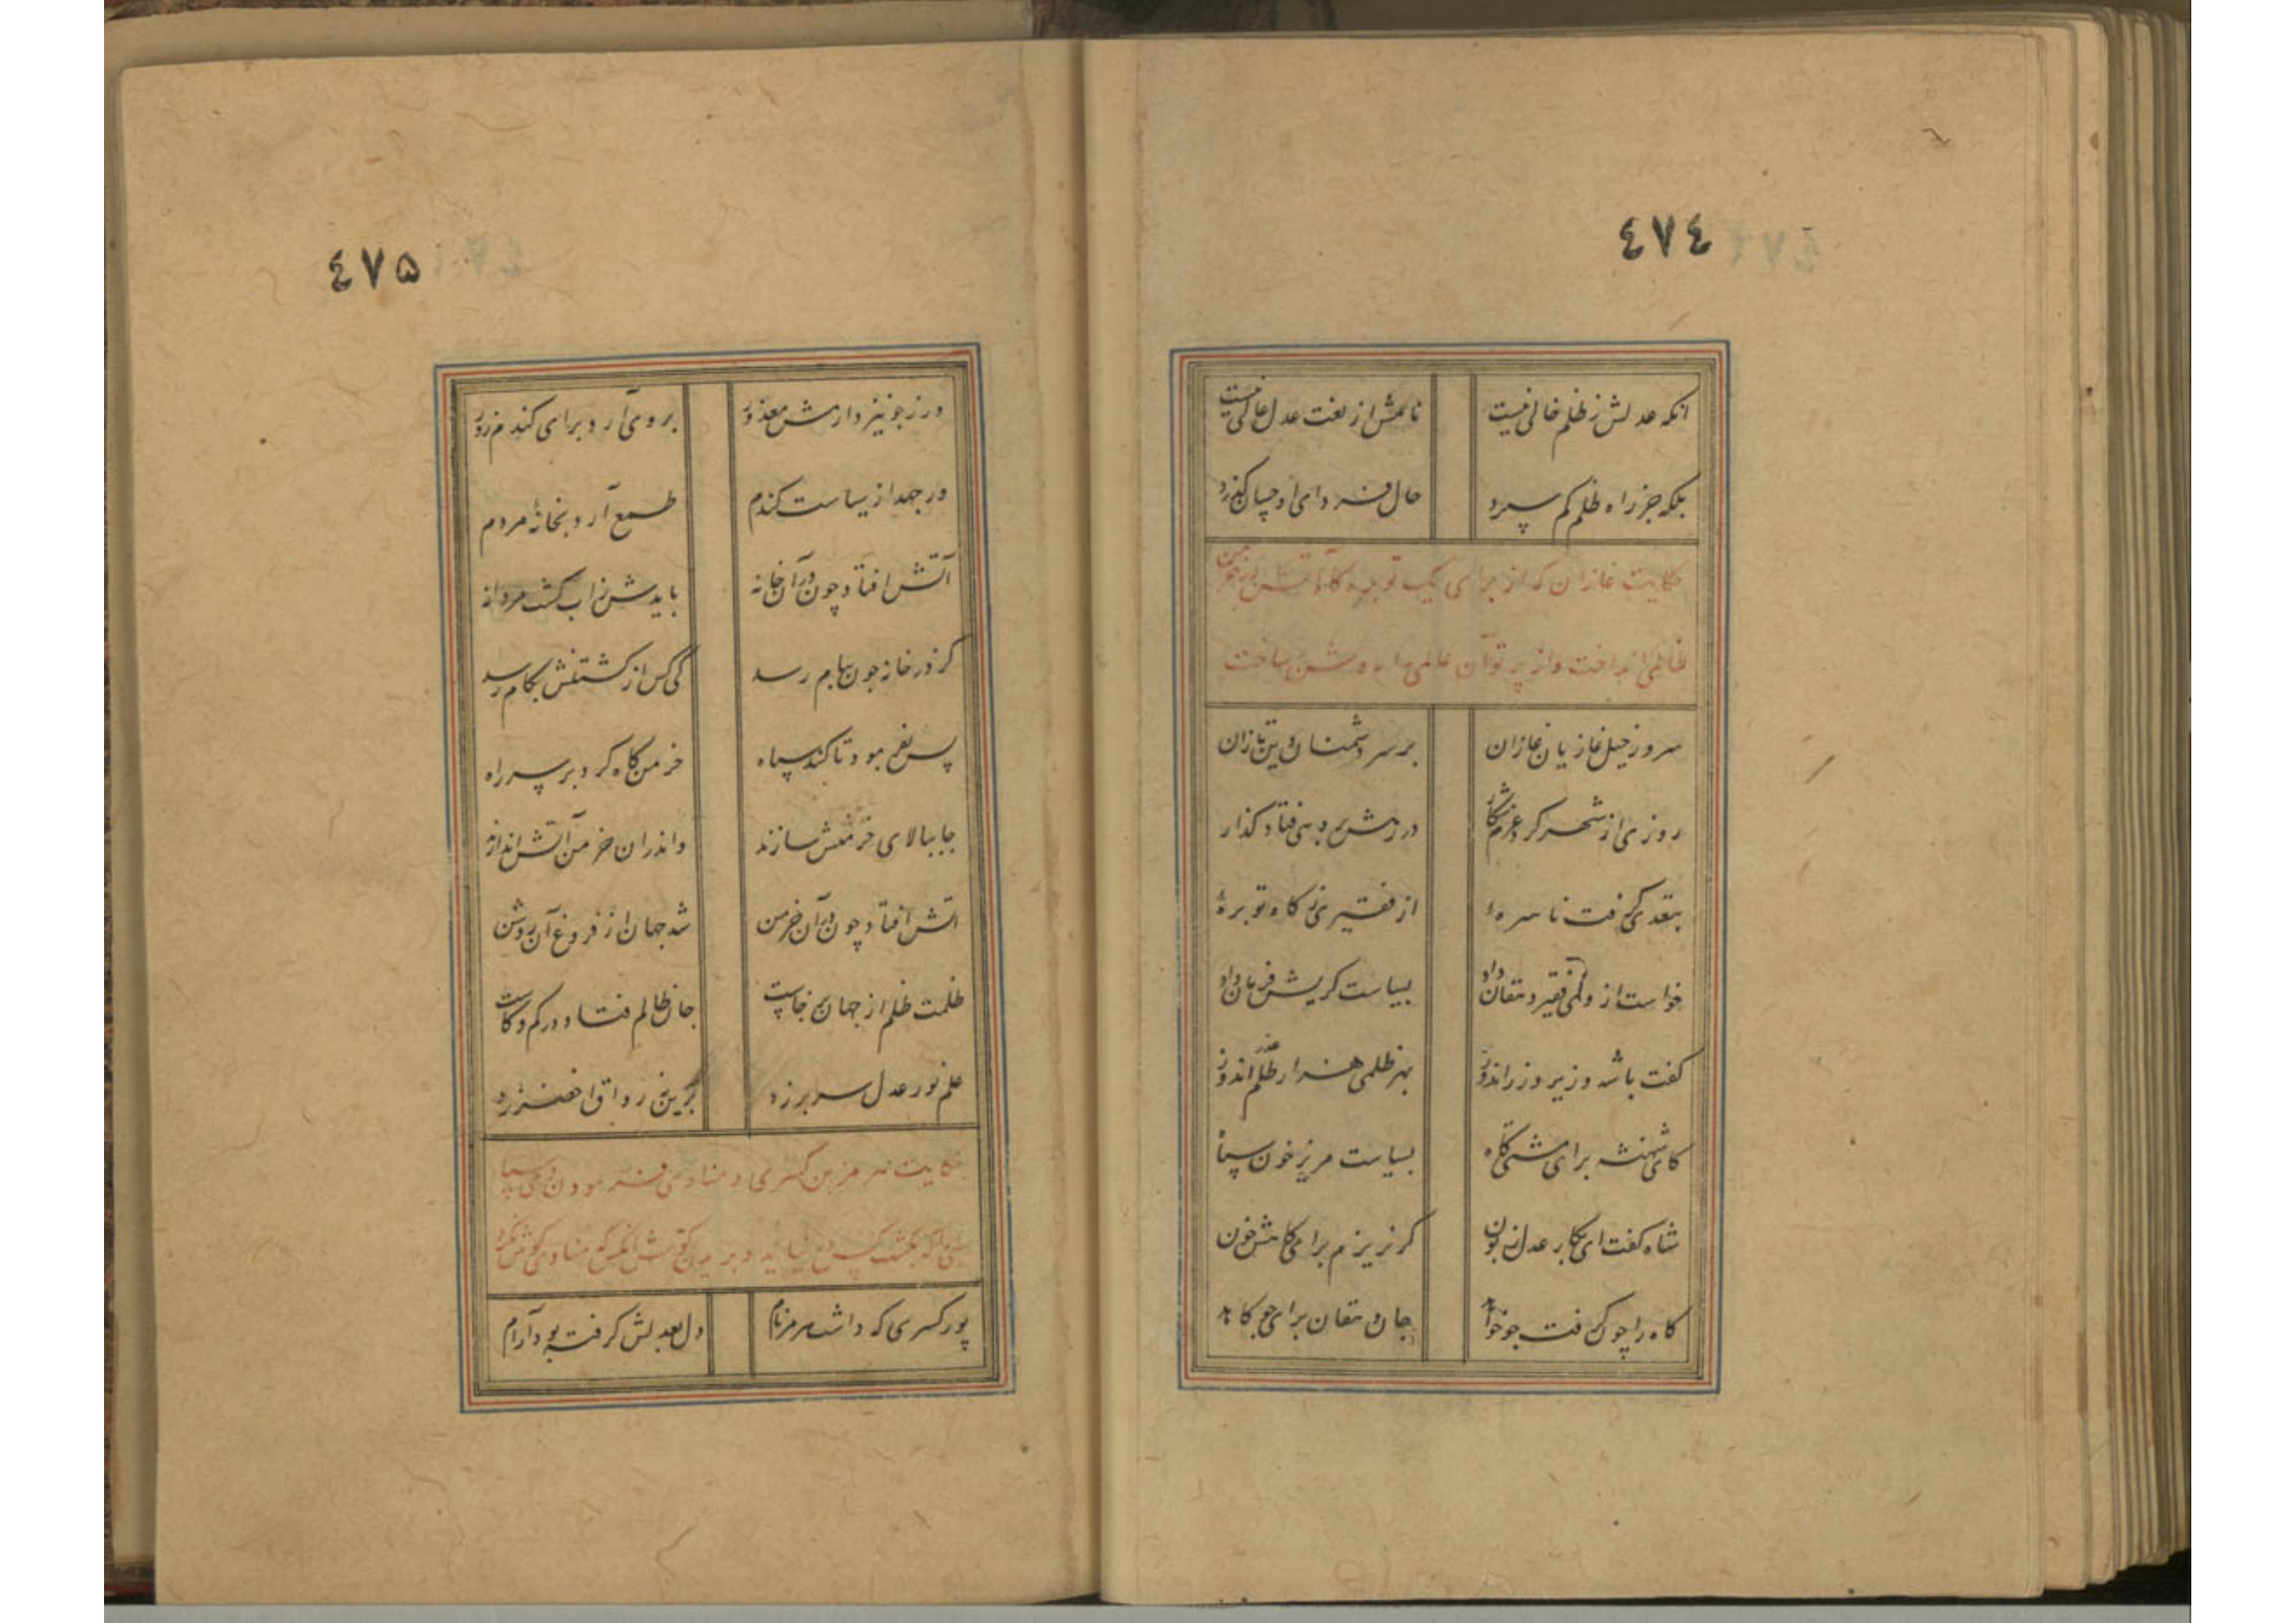 ٤٧٤
انکه عدلش ز ظلم خالی نیست نامش از لغت عدل عالی نیست
بلکه جز راه ظلم کم سپرد حال فردای او چسان گذرد
حکایت غازان که از برای یک توبره کاه آتش در خرمن
ظالمی انداخت و از پرتو آن عالمی را روشن ساخت
سرور خیل غازیان غازان بر سر دشمنان دین تازان
روزی از شهر کرد عزم شکار در رهش بر دهی فتاد گذار
بتعدی گرفت ناسره از فقیری ز کاه توبره
خواست از وی فقیر دهقان داد بسیاست گریش فرمان داد
گفت با شه وزیر وزر اندوز بهر ظلمی هزار عذر اندوز
کای شهنشه برای مشتی کاه بسیاست مریز خون سپاه
شاه گفت ای بکار عدل زبون گر نریزم برای کاهش خون
کاه را چون گرفت جو خواهد جان دهقان برای جو کاهد
٤٧۵
ور ز جو نیز دارمش معذور روی آرد برای گندم زور
ور جهد از سیاست گندم طمع آرد بخانهٔ مردم
آتش افتاد چون در آن خانه بایدش ز آب کشت مردانه
گر در خانه چون ببام رسد کی کس از کشتنش بکام رسد
پس بفرمود تا کند سپاه خرمن کاه گرد بر سر راه
جا ببالای خرمنش سازند و اندران خرمن آتش اندازند
آتش افتاد چون در آن خرمن شد جهان از فروغ آن روشن
ظلمت ظلم از جهان برخاست جان ظالم فتاد در کم و کاست
علم نور عدل سر بر زد برین رواق اخضر زد
حکایت هرمز بن کسری و منادی فرمودن وی سپاهی
را که بکشت کس و بریدن گوش آنکس که منادی گوش نکرد
پور کسری که داشت هرمز نام دل بعدلش گرفته بود آرام